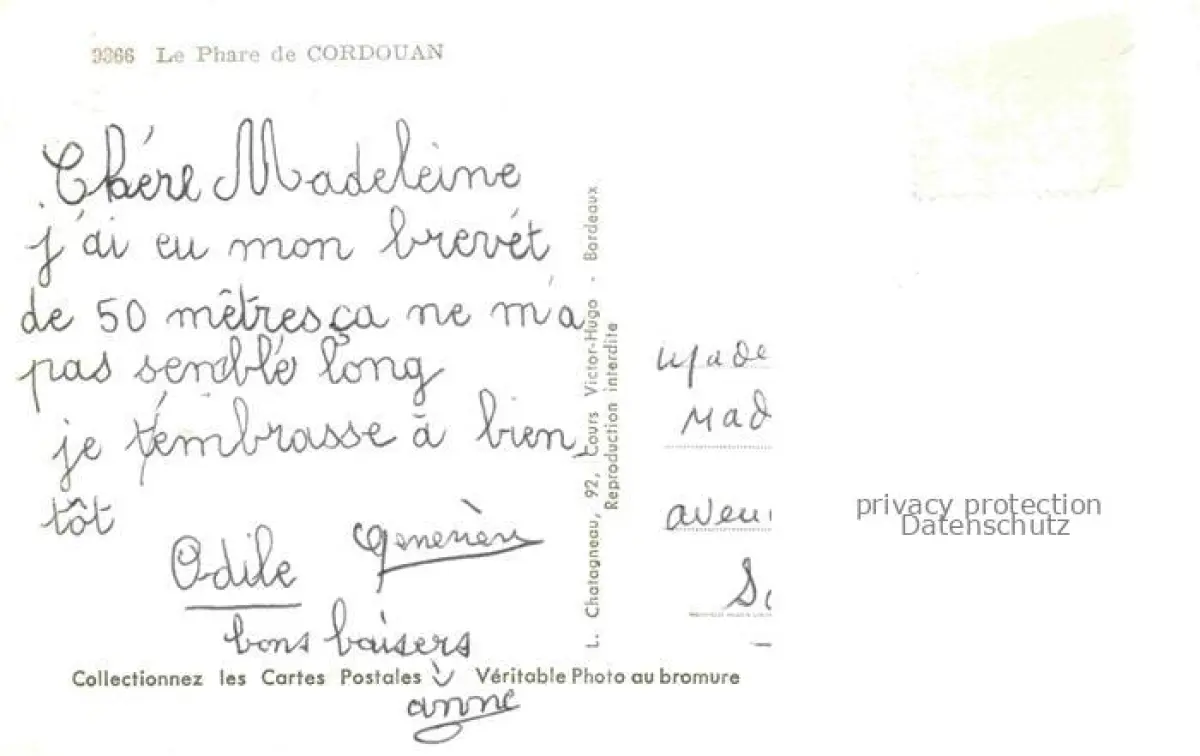 9366 Le Phare de CORDOUAN
Chére Madeleine
j'ai eu mon brevét
de 50 mêtres ça ne m'a
pas semblé long
je t'embrasse à bien
tôt
Odile Geneviève
bons baisers
anne
Collectionnez les Cartes Postales Véritable Photo au bromure
L. Chatagneau, 92, Cours Victor-Hugo - Bordeaux
Reproduction interdite
Made
Mad
aven
privacy protection
Datenschutz